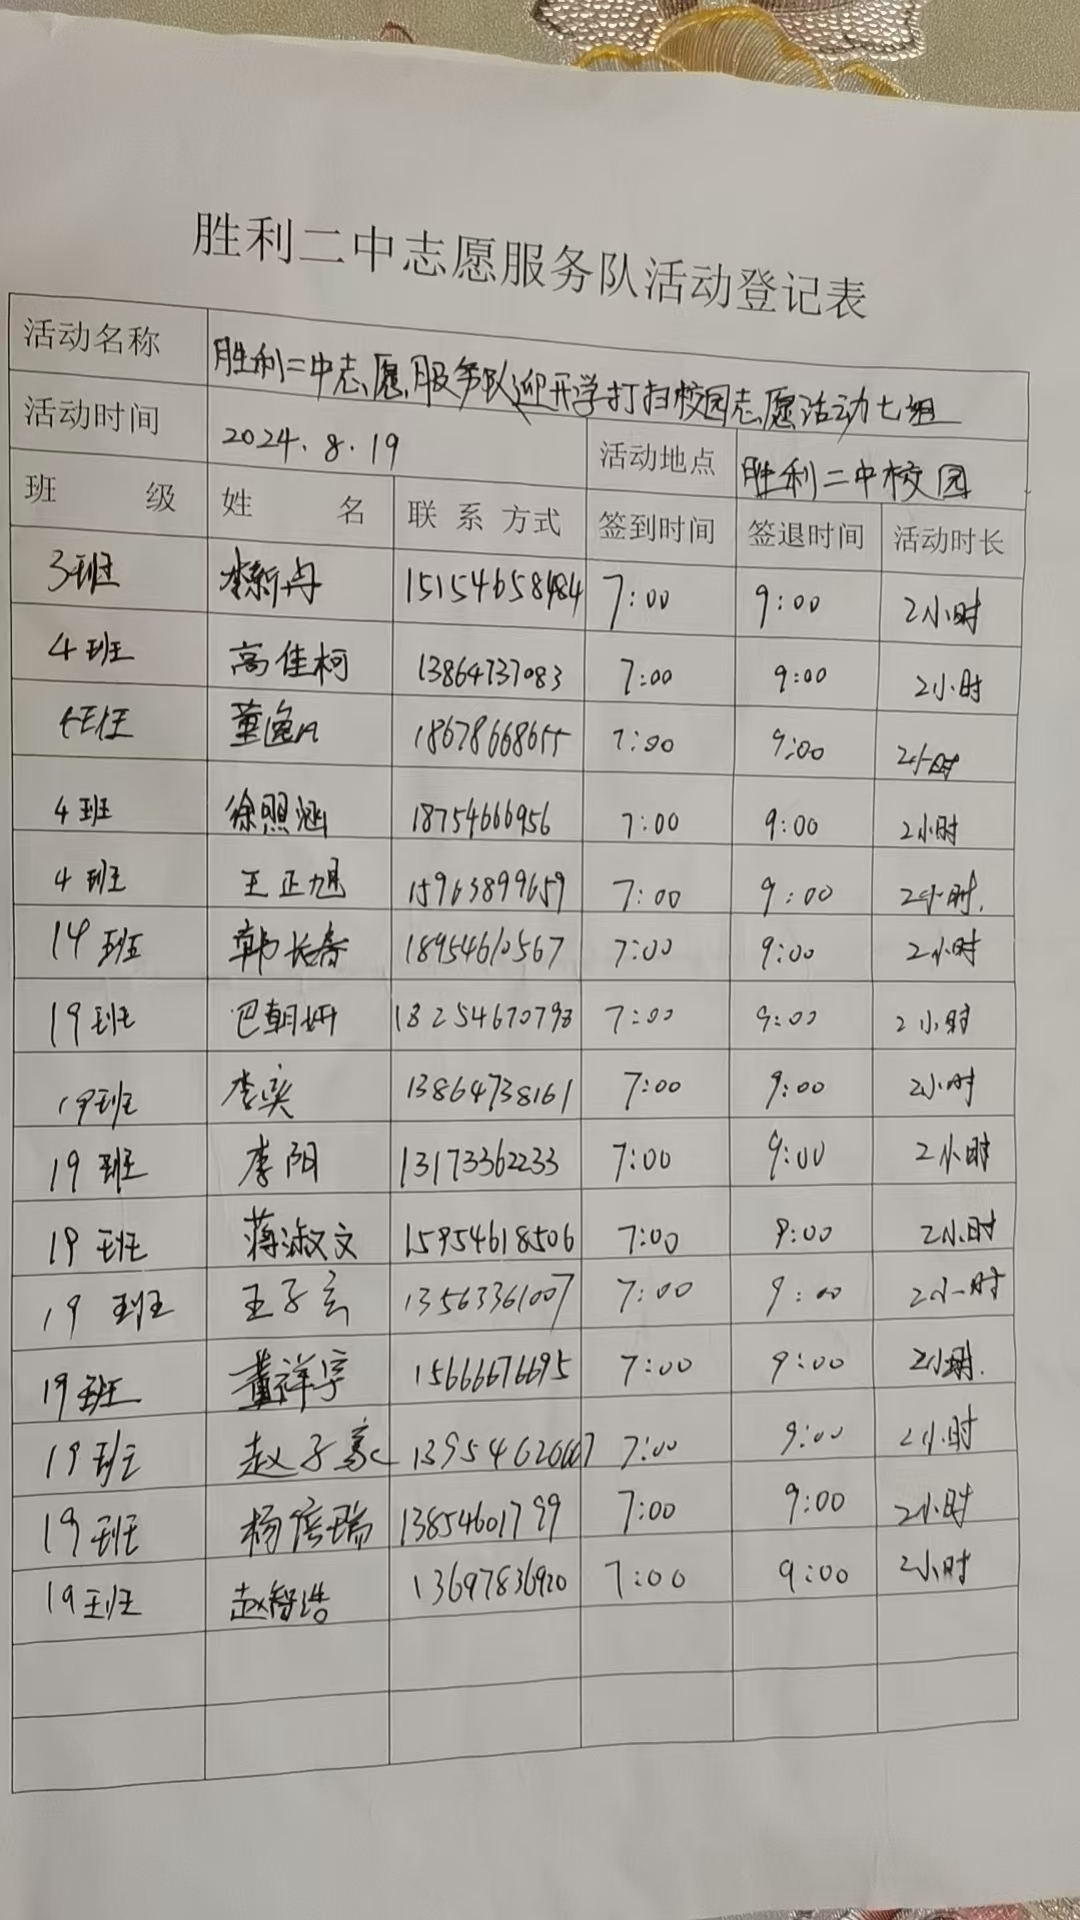 胜利二中志愿服务队活动登记表
活动名称 胜利二中志愿服务队迎开学打扫校园志愿活动七组
活动时间 2024.8.19 活动地点 胜利二中校园
班 级 姓 名 联 系 方式 签到时间 签退时间 活动时长
3班 李新冉 15154658484 7:00 9:00 2小时
4班 高佳柯 13864737083 7:00 9:00 2小时
4班 董逸凡 18678668655 7:00 9:00 2小时
4班 徐照涵 18754666956 7:00 9:00 2小时
4班 王正旭 15963899659 7:00 9:00 2小时.
14班 韩长春 18954610567 7:00 9:00 2小时
19班 巴朝妍 18254670798 7:00 9:00 2小时
19班 李奕 13864738161 7:00 9:00 2小时
19班 李阳 13173362233 7:00 9:00 2小时
19班 蒋淑文 15954618506 7:00 9:00 2小时
19班 王子玄 13563361007 7:00 9:00 2小时
19班 董祥宇 15666676695 7:00 9:00 2小时.
19班 赵子豪 7:00 9:00 2小时
19班 杨倍瑞 13854601799 7:00 9:00 2小时
19班 赵智浩 13697836920 7:00 9:00 2小时